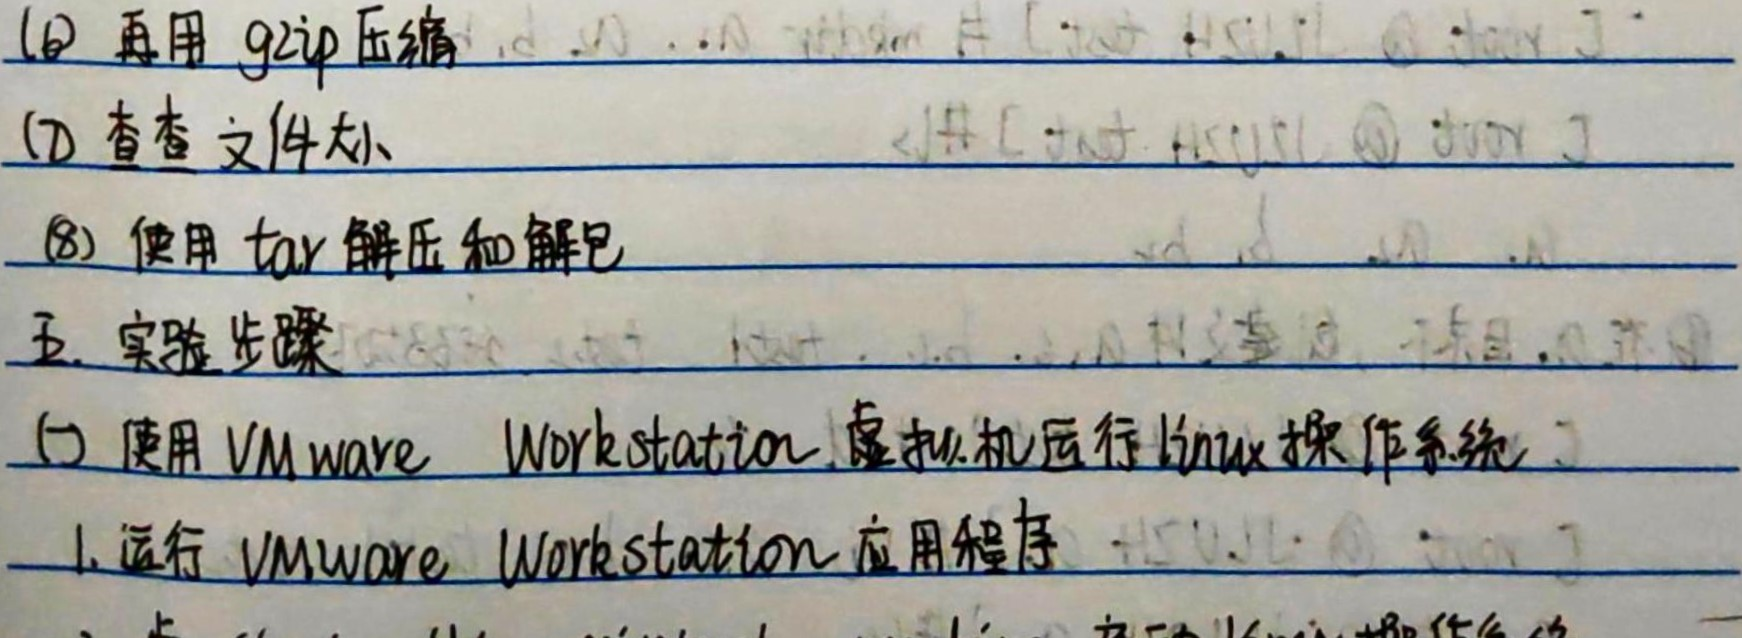 (6) 再用 gzip 压缩
(7) 查查 文件大小
(8) 使用 tar 解压和解包
五. 实验步骤
(一) 使用 VMware Workstation 虚拟机运行linux操作系统
1. 运行 VMware Workstation 应用程序